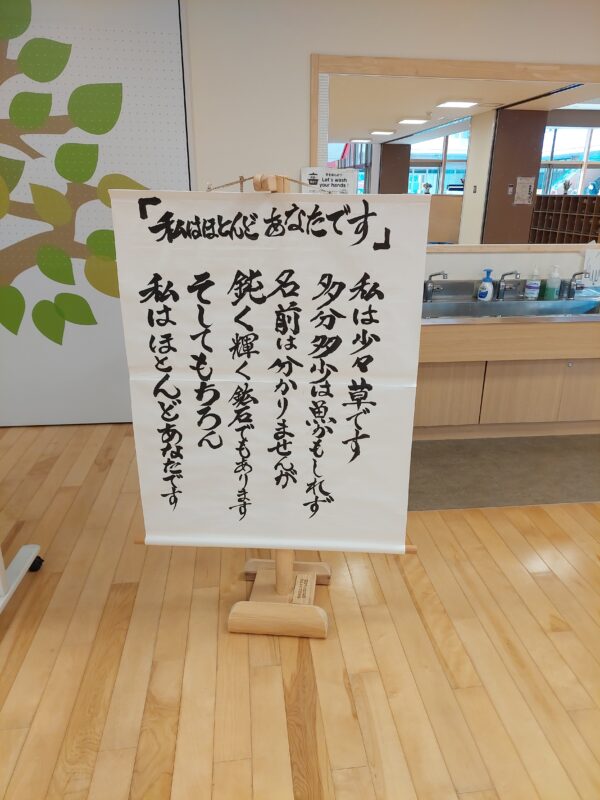 「私はほとんどあなたです」
私は少々草です
多分多少は魚かもしれず
名前は分かりませんが
鈍く輝く鉱石でもあります
そしてもちろん
私はほとんどあなたです
Let's wash
your hands!